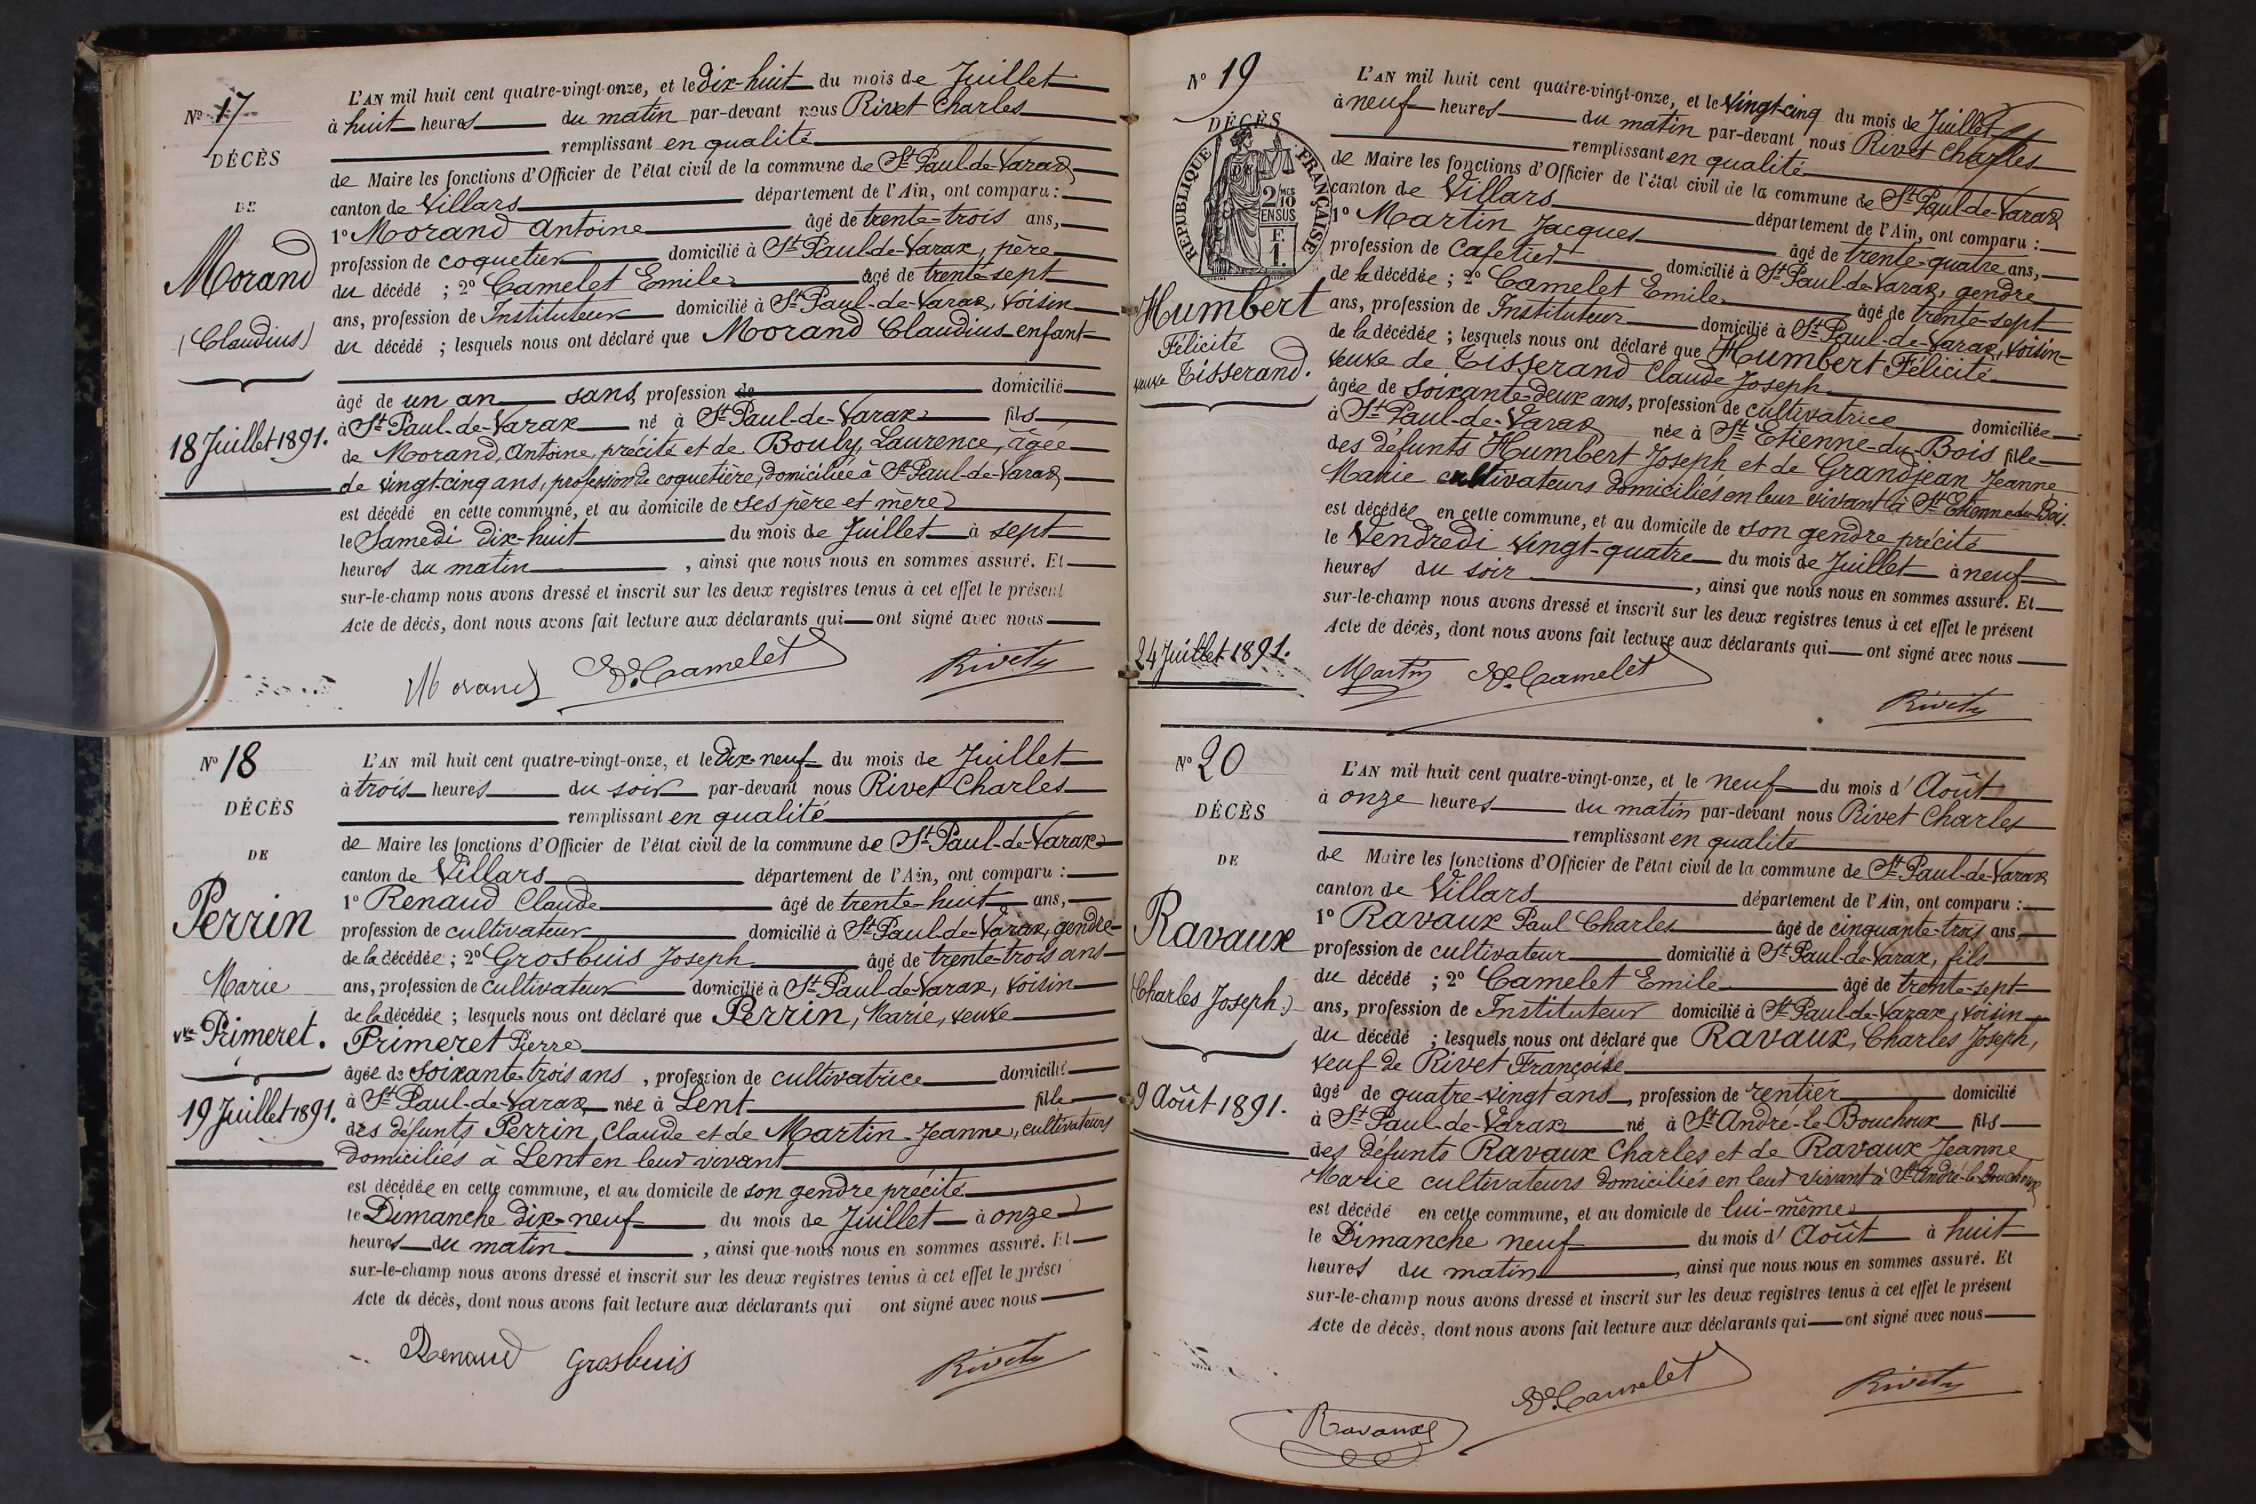 N° 17
DÉCÈS
DE
Morand
(Claudius)
18 Juillet 1891.
L'AN mil huit cent quatre-vingt-onze, et le dix-huit du mois de Juillet
à huit heures du matin par-devant nous Rivet Charles
remplissant en qualité
de Maire les fonctions d'Officier de l'état civil de la commune de St Paul-de-Varax
canton de Villars département de l'Ain, ont comparu :
1° Morand Antoine âgé de trente-trois ans,
profession de coquetier domicilié à St Paul-de-Varax, père
du décédé ; 2° Camelet Emile âgé de trente-sept
ans, profession de Instituteur domicilié à St Paul-de-Varax, voisin
du décédé ; lesquels nous ont déclaré que Morand Claudius enfant
âgé de un an sans profession de domicilié
à St Paul-de-Varax né à St Paul-de-Varax fils
de Morand, Antoine, précité et de Bouly, Laurence, âgée
de vingt-cinq ans, profession de coquetière, domiciliée à St Paul-de-Varax
est décédé en cette commune, et au domicile de ses père et mère
le Samedi dix-huit du mois de Juillet à sept
heures du matin, ainsi que nous nous en sommes assuré. Et
sur-le-champ nous avons dressé et inscrit sur les deux registres tenus à cet effet le présent
Acte de décès, dont nous avons fait lecture aux déclarants qui ont signé avec nous
Morand E. Camelet Rivet
N° 18
DÉCÈS
DE
Perrin
Marie
vve Primeret.
19 Juillet 1891.
L'AN mil huit cent quatre-vingt-onze, et le Dix-neuf du mois de Juillet
à trois heures du soir par-devant nous Rivet Charles
remplissant en qualité
de Maire les fonctions d'Officier de l'état civil de la commune de St Paul-de-Varax
canton de Villars département de l'Ain, ont comparu :
1° Renaud Claude âgé de trente-huit ans,
profession de cultivateur domicilié à St Paul-de-Varax, gendre
de la décédée ; 2° Grosbuis Joseph âgé de trente-trois ans
ans, profession de cultivateur domicilié à St Paul-de-Varax, voisin
de la décédée ; lesquels nous ont déclaré que Perrin, Marie, veuve
Primeret Pierre
âgée de soixante-trois ans, profession de cultivatrice domicilié
à St Paul-de-Varax née à Lent fille
des défunts Perrin, Claude et de Martin Jeanne, cultivateurs
domiciliés à Lent en leur vivant
est décédée en cette commune, et au domicile de son gendre précité
le Dimanche dix-neuf du mois de Juillet à onze
heures du matin, ainsi que nous nous en sommes assuré. Et
sur-le-champ nous avons dressé et inscrit sur les deux registres tenus à cet effet le présent
Acte de décès, dont nous avons fait lecture aux déclarants qui ont signé avec nous
Renaud Grosbuis Rivet
N° 19
DÉCÈS
DE
RÉPUBLIQUE FRANÇAISE
2/10 EN SUS
F. 1.
Humbert
Félicité
veuve Tisserand.
24 Juillet 1891.
L'AN mil huit cent quatre-vingt-onze, et le vingt-cinq du mois de Juillet
à neuf heures du matin par-devant nous Rivet Charles
remplissant en qualité
de Maire les fonctions d'Officier de l'état civil de la commune de St Paul-de-Varax
canton de Villars département de l'Ain, ont comparu :
1° Martin Jacques âgé de trente-quatre ans,
profession de Cafetier domicilié à St Paul-de-Varax, gendre
de la décédée ; 2° Camelet Emile âgé de trente-sept
ans, profession de Instituteur domicilié à St Paul-de-Varax, voisin
de la décédée ; lesquels nous ont déclaré que Humbert Félicité
veuve de Tisserand Claude Joseph
âgée de soixante-deux ans, profession de cultivatrice domiciliée
à St Paul-de-Varax née à St Etienne-du-Bois fille
des défunts Humbert Joseph et de Grandjean Jeanne
Marie cultivateurs domiciliés en leur vivant à St Etienne-du-Bois.
est décédée en cette commune, et au domicile de son gendre précité
le Vendredi vingt-quatre du mois de Juillet à neuf
heures du soir, ainsi que nous nous en sommes assuré. Et
sur-le-champ nous avons dressé et inscrit sur les deux registres tenus à cet effet le présent
Acte de décès, dont nous avons fait lecture aux déclarants qui ont signé avec nous
Martin E. Camelet Rivet
N° 20
DÉCÈS
DE
Ravaux
(Charles Joseph.)
9 Août 1891.
L'AN mil huit cent quatre-vingt-onze, et le neuf du mois d'Août
à onze heures du matin par-devant nous Rivet Charles
remplissant en qualité
de Maire les fonctions d'Officier de l'état civil de la commune de St Paul-de-Varax
canton de Villars département de l'Ain, ont comparu :
1° Ravaux Paul Charles âgé de cinquante-trois ans,
profession de cultivateur domicilié à St Paul-de-Varax, fils
du décédé ; 2° Camelet Emile âgé de trente-sept
ans, profession de Instituteur domicilié à St Paul-de-Varax, voisin
du décédé ; lesquels nous ont déclaré que Ravaux, Charles Joseph,
veuf de Rivet Françoise
âgé de quatre-vingt ans, profession de rentier domicilié
à St Paul-de-Varax né à St André-le-Bouchoux fils
des défunts Ravaux Charles et de Ravaux Jeanne
Marie cultivateurs domiciliés en leur vivant à St André-le-Bouchoux
est décédé en cette commune, et au domicile de lui-même
le Dimanche neuf du mois d'Août à huit
heures du matin, ainsi que nous nous en sommes assuré. Et
sur-le-champ nous avons dressé et inscrit sur les deux registres tenus à cet effet le présent
Acte de décès, dont nous avons fait lecture aux déclarants qui ont signé avec nous
Ravaux E. Camelet Rivet